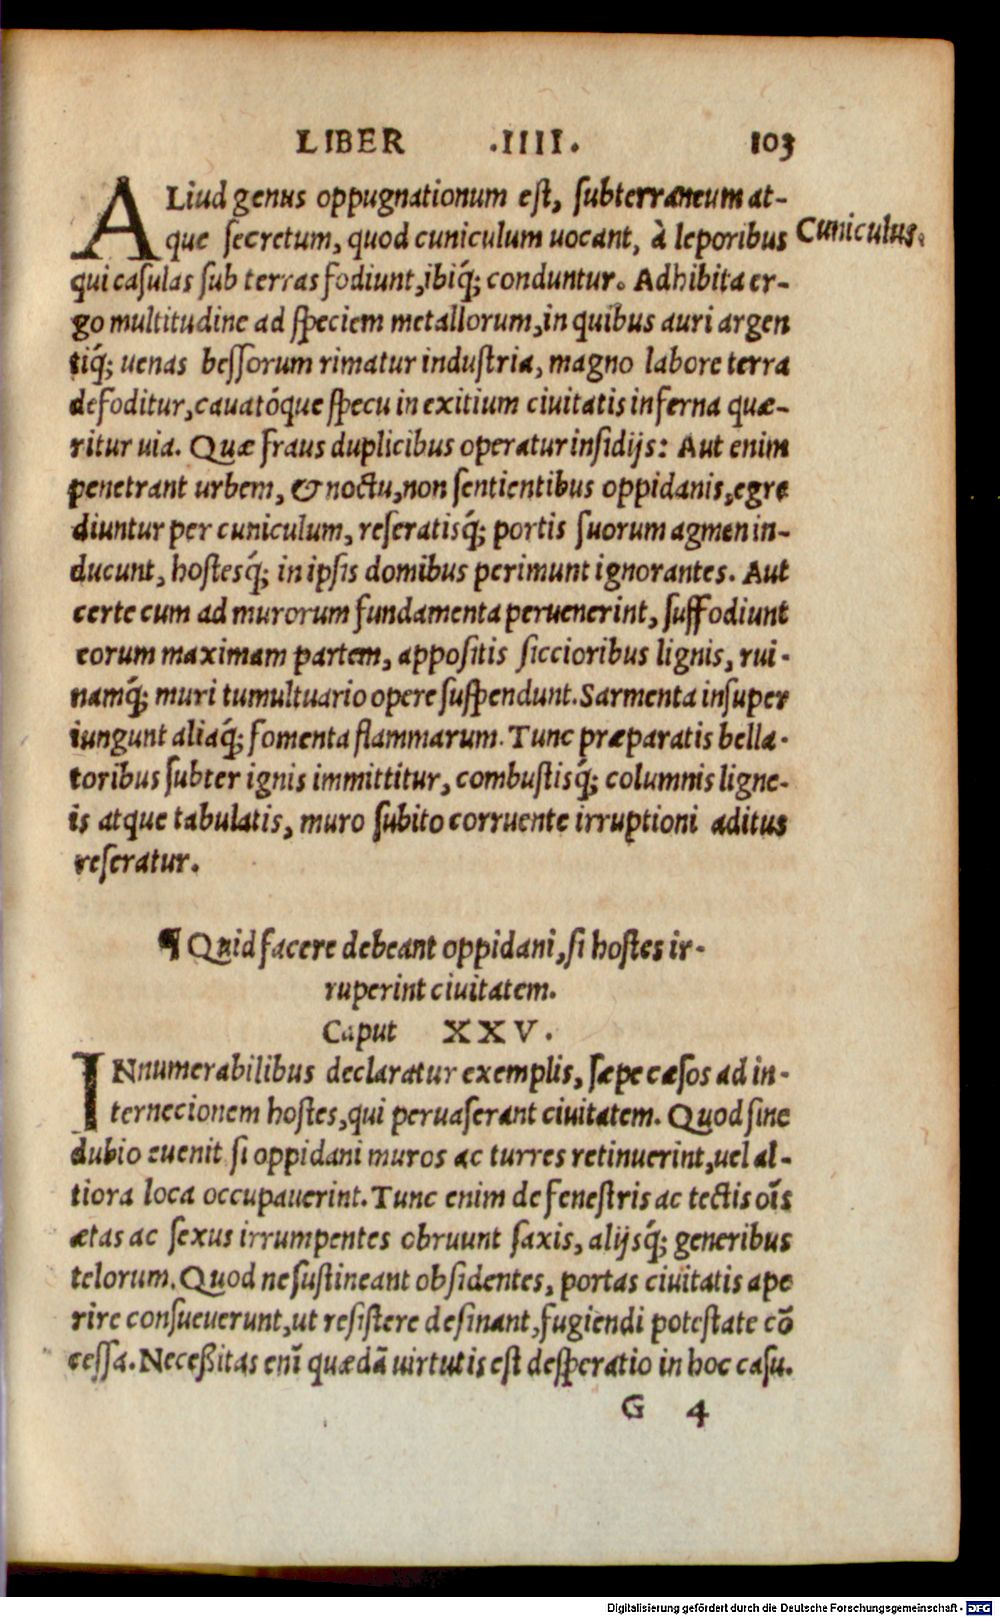 LIBER .IIII. 103
ALiud genus oppugnationum est, subterraneum at-
que secretum, quod cuniculum uocant, à leporibus Cuniculus.
qui casulas sub terras fodiunt, ibiq́; conduntur. Adhibita er-
go multitudine ad speciem metallorum, in quibus auri argen
tiq́; uenas bessorum rimatur industria, magno labore terra
defoditur, cauatóque specu in exitium ciuitatis inferna quæ-
ritur uia. Quæ fraus duplicibus operatur insidijs: Aut enim
penetrant urbem, & noctu, non sentientibus oppidanis, egre
diuntur per cuniculum, reseratisq́; portis suorum agmen in-
ducunt, hostesq́; in ipsis domibus perimunt ignorantes. Aut
certe cum ad murorum fundamenta peruenerint, suffodiunt
eorum maximam partem, appositis siccioribus lignis, rui-
namq́; muri tumultuario opere suspendunt. Sarmenta insuper
iungunt aliaq́; fomenta flammarum. Tunc præparatis bella-
toribus subter ignis immittitur, combustisq́; columnis ligne-
is atque tabulatis, muro subito corruente irruptioni aditus
reseratur.
¶ Quid facere debeant oppidani, si hostes ir-
ruperint ciuitatem.
Caput XXV.
INnumerabilibus declaratur exemplis, sæpe cæsos ad in-
ternecionem hostes, qui peruaserant ciuitatem. Quod sine
dubio euenit si oppidani muros ac turres retinuerint, uel al-
tiora loca occupauerint. Tunc enim de fenestris ac tectis oĩs
ætas ac sexus irrumpentes obruunt saxis, alijsq́; generibus
telorum. Quod ne sustineant obsidentes, portas ciuitatis ape
rire consueuerunt, ut resistere desinant, fugiendi potestate cõ
cessa. Neceßitas enĩ quædã uirtutis est desperatio in hoc casu.
G 4
Digitalisierung gefördert durch die Deutsche Forschungsgemeinschaft - DFG